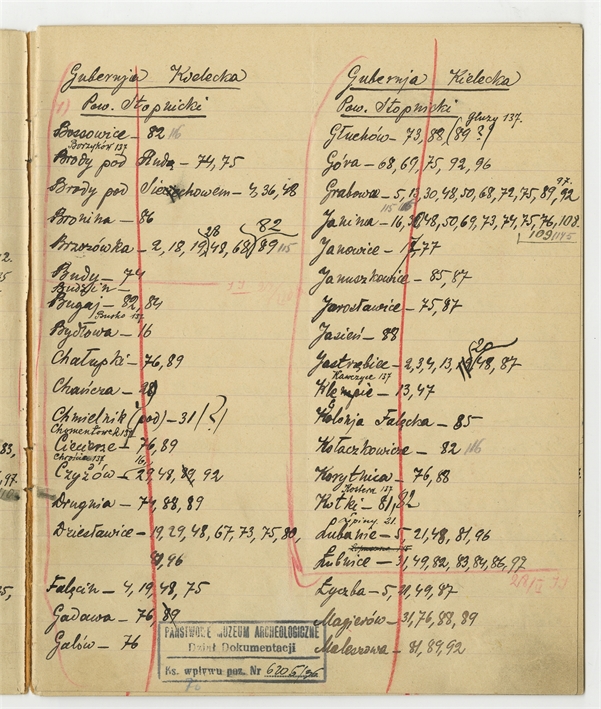 Gubernja Kielecka
Pow. Stopnicki
Bossowice – 82 116
Borzyków 137
Brody pod Rudą – 74, 75
Brody pod Sierachowem – 4, 36, 48
Bronina – 86
28 82
Brzozówka – 2, 18, 19, 48, 68, 89 115
Budy – 74
Budzyń –
Bugaj – 82, 84
Busko 137
Bydłowa – 16
Chałupki – 76, 89
Chańcza – 28
Chmielnik (pod) – 31 (?)
Chomentówek 137
Ciecierze – 76, 89
Chrobrze 137
Czyżów – 29, 48, 89, 92
Drugnia – 74, 88, 89
Dziesławice – 19, 29, 48, 67, 73, 75, 80,
81, 96
Falęcin – 4, 19, 48, 75
Gadawa – 76, 89
Galów – 76
PAŃSTWOWE MUZEUM ARCHEOLOGICZNE
Dział Dokumentacji
Ks. wpływu poz. Nr
Gubernja Kielecka
Pow. Stopnicki
Gluzy 137.
Głuchów – 73, 88 (89 ?)
Góra – 68, 69, 75, 92, 96
97.
Grabowa – 5, 13, 30, 48, 50, 68, 72, 75, 89, 92
115 116
Janina – 16, 30, 48, 50, 69, 73, 74, 75, 76, 108
109 1145
Janowice – 17, 77
Januszkowice – 85, 87
Jarosławice – 75, 87
Jasień – 88
20
Jastrzębice – 2, 3, 4, 13, 19, 48, 87
Kawczyce 137
Klępie – 13, 47
Kolonja Falęcka – 85
Kołaczkowice – 82 116
Korytnica – 76, 88
Kostera 137
Kotki – 81, 82
Lubanie – 5, 21, 48, 81, 96
Łubnice – 31, 49, 82, 83, 84, 86, 97
Łyczba – 5, 21, 49, 87
Magierów – 31, 76, 88, 89
Maleszowa – 81, 89, 92